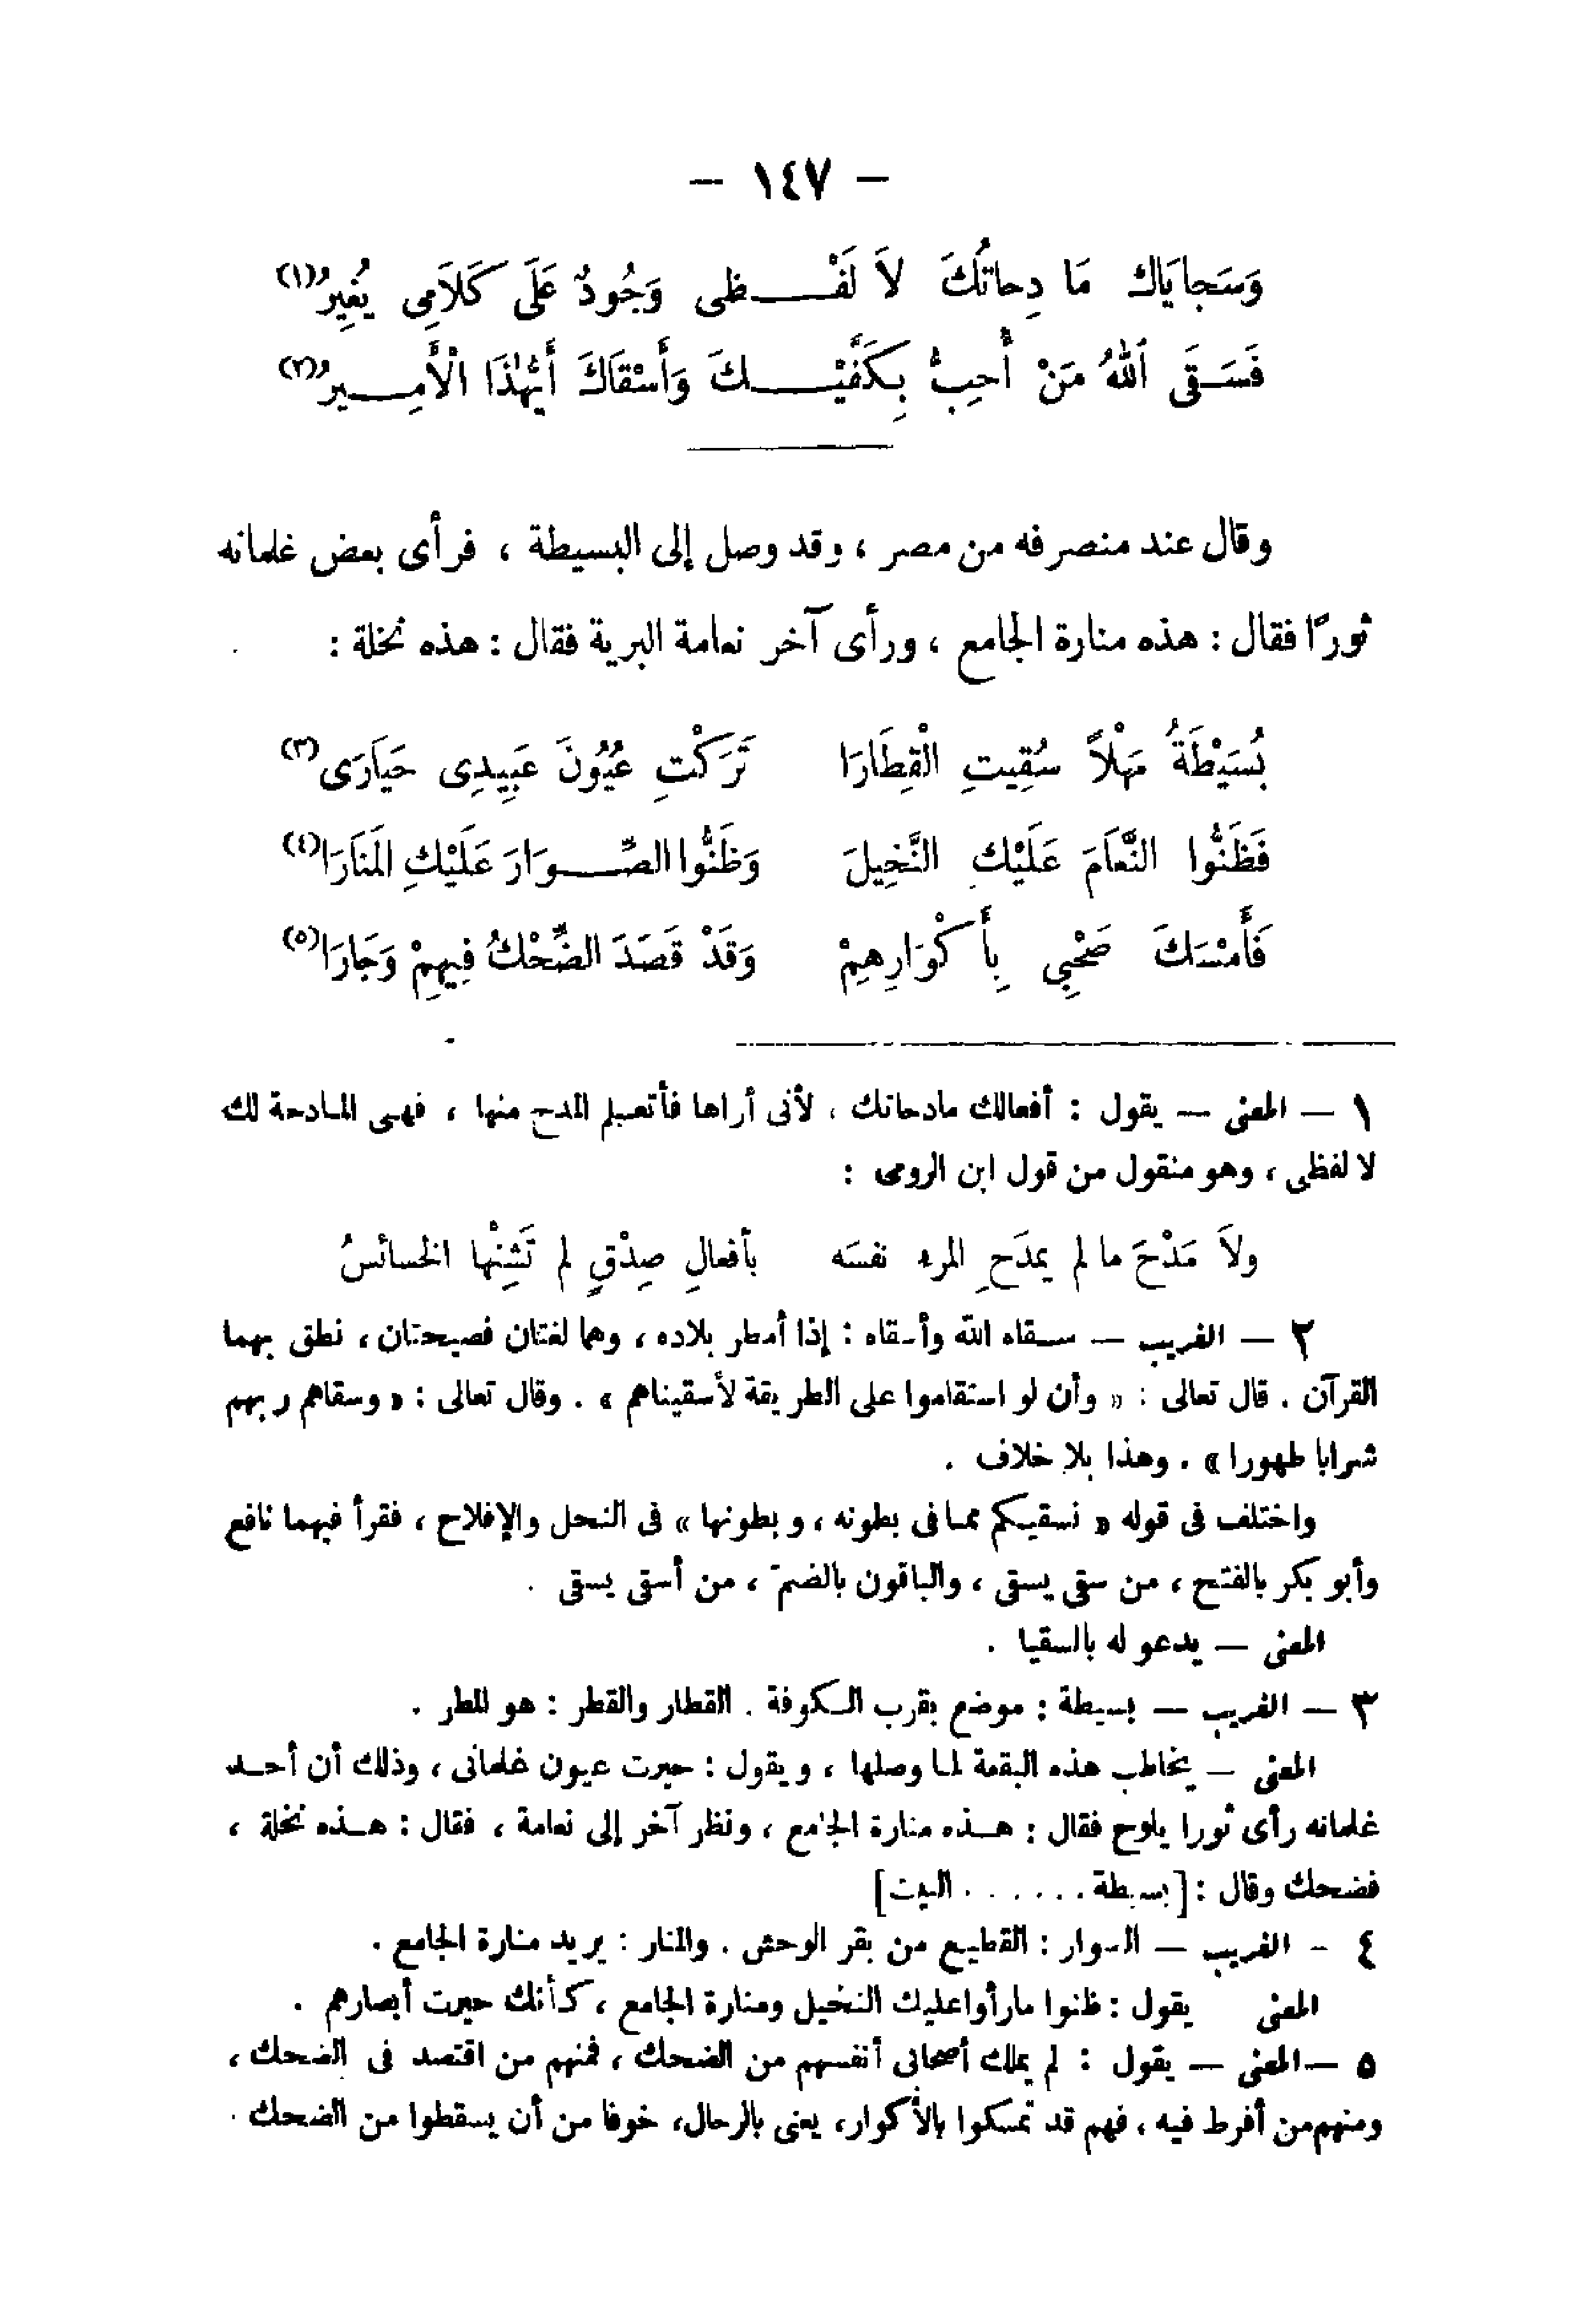 — ١٤٧ —
وَسَجايَاكَ مَا دِحاتُكَ لاَ لَفْـظِى وَجُودٌ عَلَى كَلاَمِى يُغِيرُ(١)
فَسَـقَى ٱللهُ مَنْ أُحِبُّ بِكَفَّيْـكَ وَأَسْقَاكَ أَيُّهٰذَا الْأَمِـيرُ(٢)
وقال عند منصرفه من مصر ، وقد وصل إلى البسيطة ، فرأى بعض غلمانه
ثورًا فقال : هذه منارة الجامع ، ورأى آخر نعامة البرية فقال : هذه نخلة :
بُسَيْطَةُ مَهْلاً سُقِيتِ الْقِطَارَا تَرَكْتِ عُيُونَ عَبِيدِى حَيَارَى(٣)
فَظَنُّوا النَّعَامَ عَلَيْكِ النَّخِيلَ وَظَنُّوا الصِّـوَارَ عَلَيْكِ المَنَارَا(٤)
فَأَمْسَكَ صَحْبِي بِأَكْوَارِهِمْ وَقَدْ قَصَدَ الضِّحْكُ فِيهِمْ وَجَارَا(٥)
١ — المعنى — يقول : أفعالك مادحاتك ، لأنى أراها فأتعلم المدح منها ، فهى المـادحة لك
لا لفظى ، وهو منقول من قول ابن الرومى :
ولاَ مَدْحَ ما لم يمدَحِ المرء نفسَه بأفعالِ صِدْقٍ لم تَشِنْها الخسائسُ
٢ — الغريب — سـقاه الله وأسقاه : إذا أمطر بلاده ، وهما لغتان فصيحتان ، نطق بهما
القرآن . قال تعالى : « وأن لو استقاموا على الطريقة لأسقيناهم » . وقال تعالى : « وسقاهم ربهم
شرابا طهورا » . وهذا بلا خلاف .
واختلف فى قوله « نسقيكم ممـا فى بطونه ، وبطونها » فى النحل والإفلاح ، فقرأ فيهما نافع
وأبو بكر بالفتح ، من سقى يسقى ، والباقون بالضمّ ، من أسقى يسقى .
المعنى — يدعو له بالسقيا .
٣ — الغريب — بسيطة : موضع بقرب الـكوفة . القطار والقطر : هو المطر .
المعنى — يخاطب هذه البقعة لمـا وصلها ، ويقول : حيرت عيون غلمانى ، وذلك أن أحـد
غلمانه رأى ثورا يلوح فقال : هـذه منارة الجامع ، ونظر آخر إلى نعامة ، فقال : هـذه نخلة ،
فضحك وقال : [بسيطة . . . . . . البيت]
٤ - الغريب — الصوار : القطيع من بقر الوحش . والمنار : يريد منارة الجامع .
المعنى يقول : ظنوا مارأوا عليك النخيل ومنارة الجامع ، كأنك حيرت أبصارهم .
٥ — المعنى — يقول : لم يملك أصحابى أنفسهم من الضحك ، فمنهم من اقتصد فى الضحك ،
ومنهم من أفرط فيه ، فهم قد تمسكوا بالأكوار ، يعنى بالرحال ، خوفا من أن يسقطوا من الضحك .